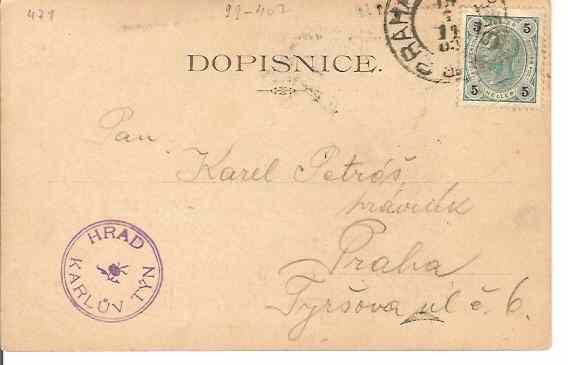 471
99-407
PRAHA
11
5 5
5 HELLER 5
DOPISNICE.
Pan
Karel Petráš
Praha
Tyršova ul č. 6.
HRAD
KARLŮV TÝN